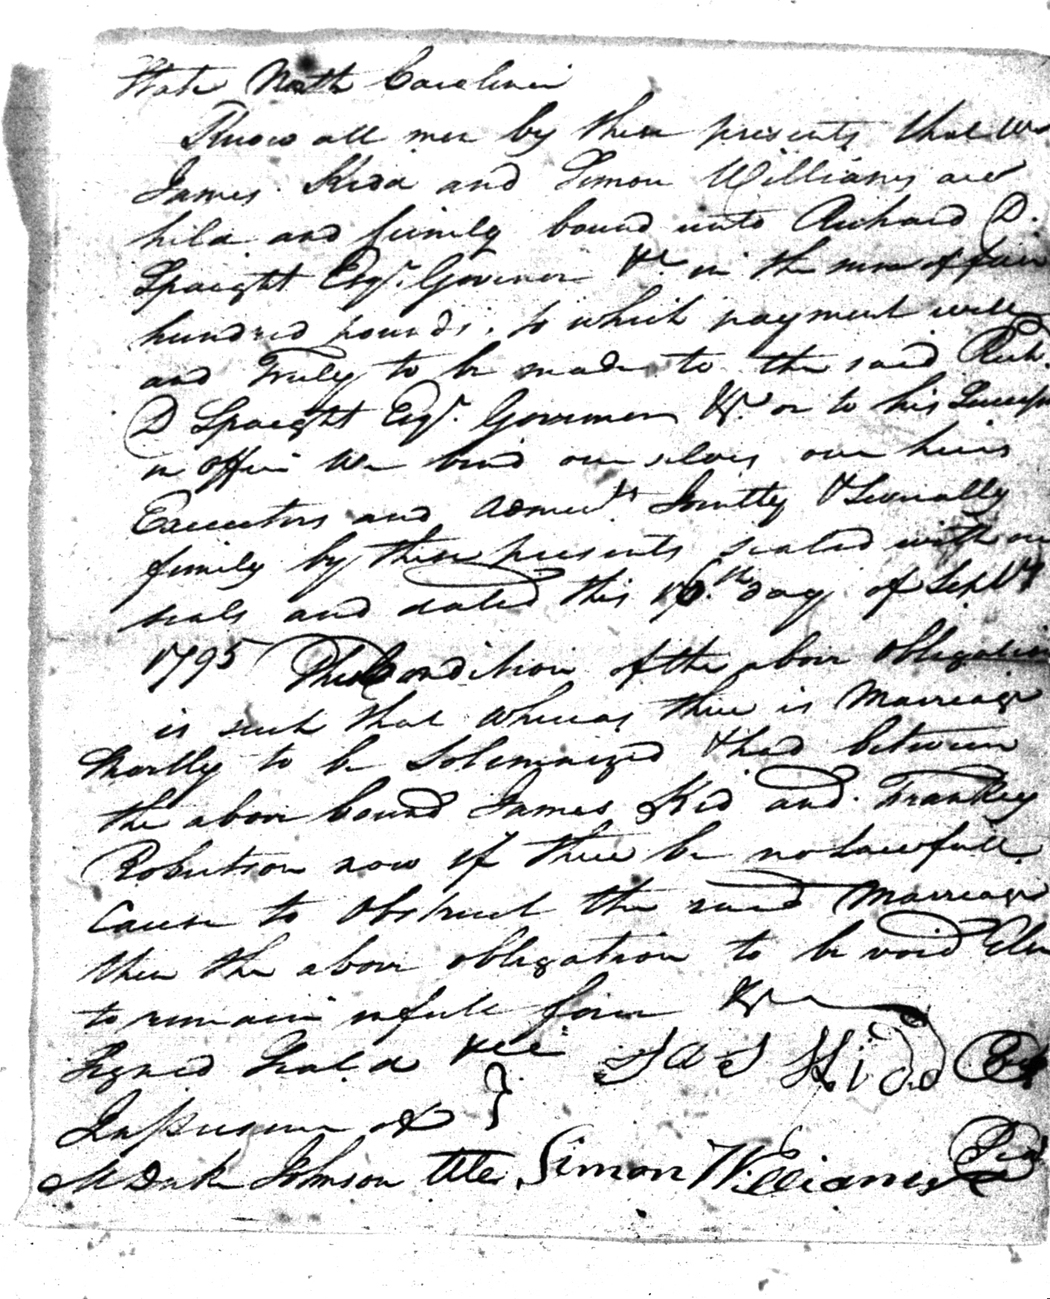 State North Carolina
Know all men by these presents that we
James Kidd and Simon Williams are
held and firmly bound unto Richard D.
Spaight Esqr. Governor &c in the sum of five
hundred pounds, to which payment well
and Truly to be made to the said Rich.
D Spaight Esqr. Governor &c. or to his Success
in office we bind ourselves our heirs
Executors and Admrs Jointly & Severally
firmly by these presents sealed with our
seals and dated this day of Septr
1795 The Condition of the above Obligation
is such that whereas there is Marriage
Shortly to be Solemnized & had between
the above bound James Kid and Frankey
Robertson now if there be no Lawfull
Cause to Obstruct the said Marriage
then the above obligation to be void Else
to remain in full force &c
Signed Seald &c Jas Kidd Seal
In presence of }
Johnson Simon Williams Seal